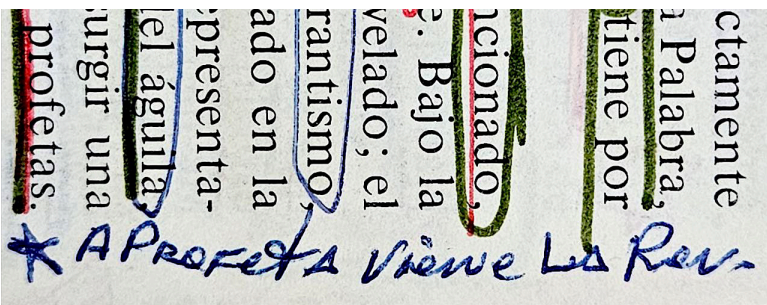 ctamente
a Palabra,
tiene por
ncionado,
e. Bajo la
velado; el
rantismo,
ado en la
epresenta-
del águila,
urgir una
profetas.
* A Profeta Viene La Rev.